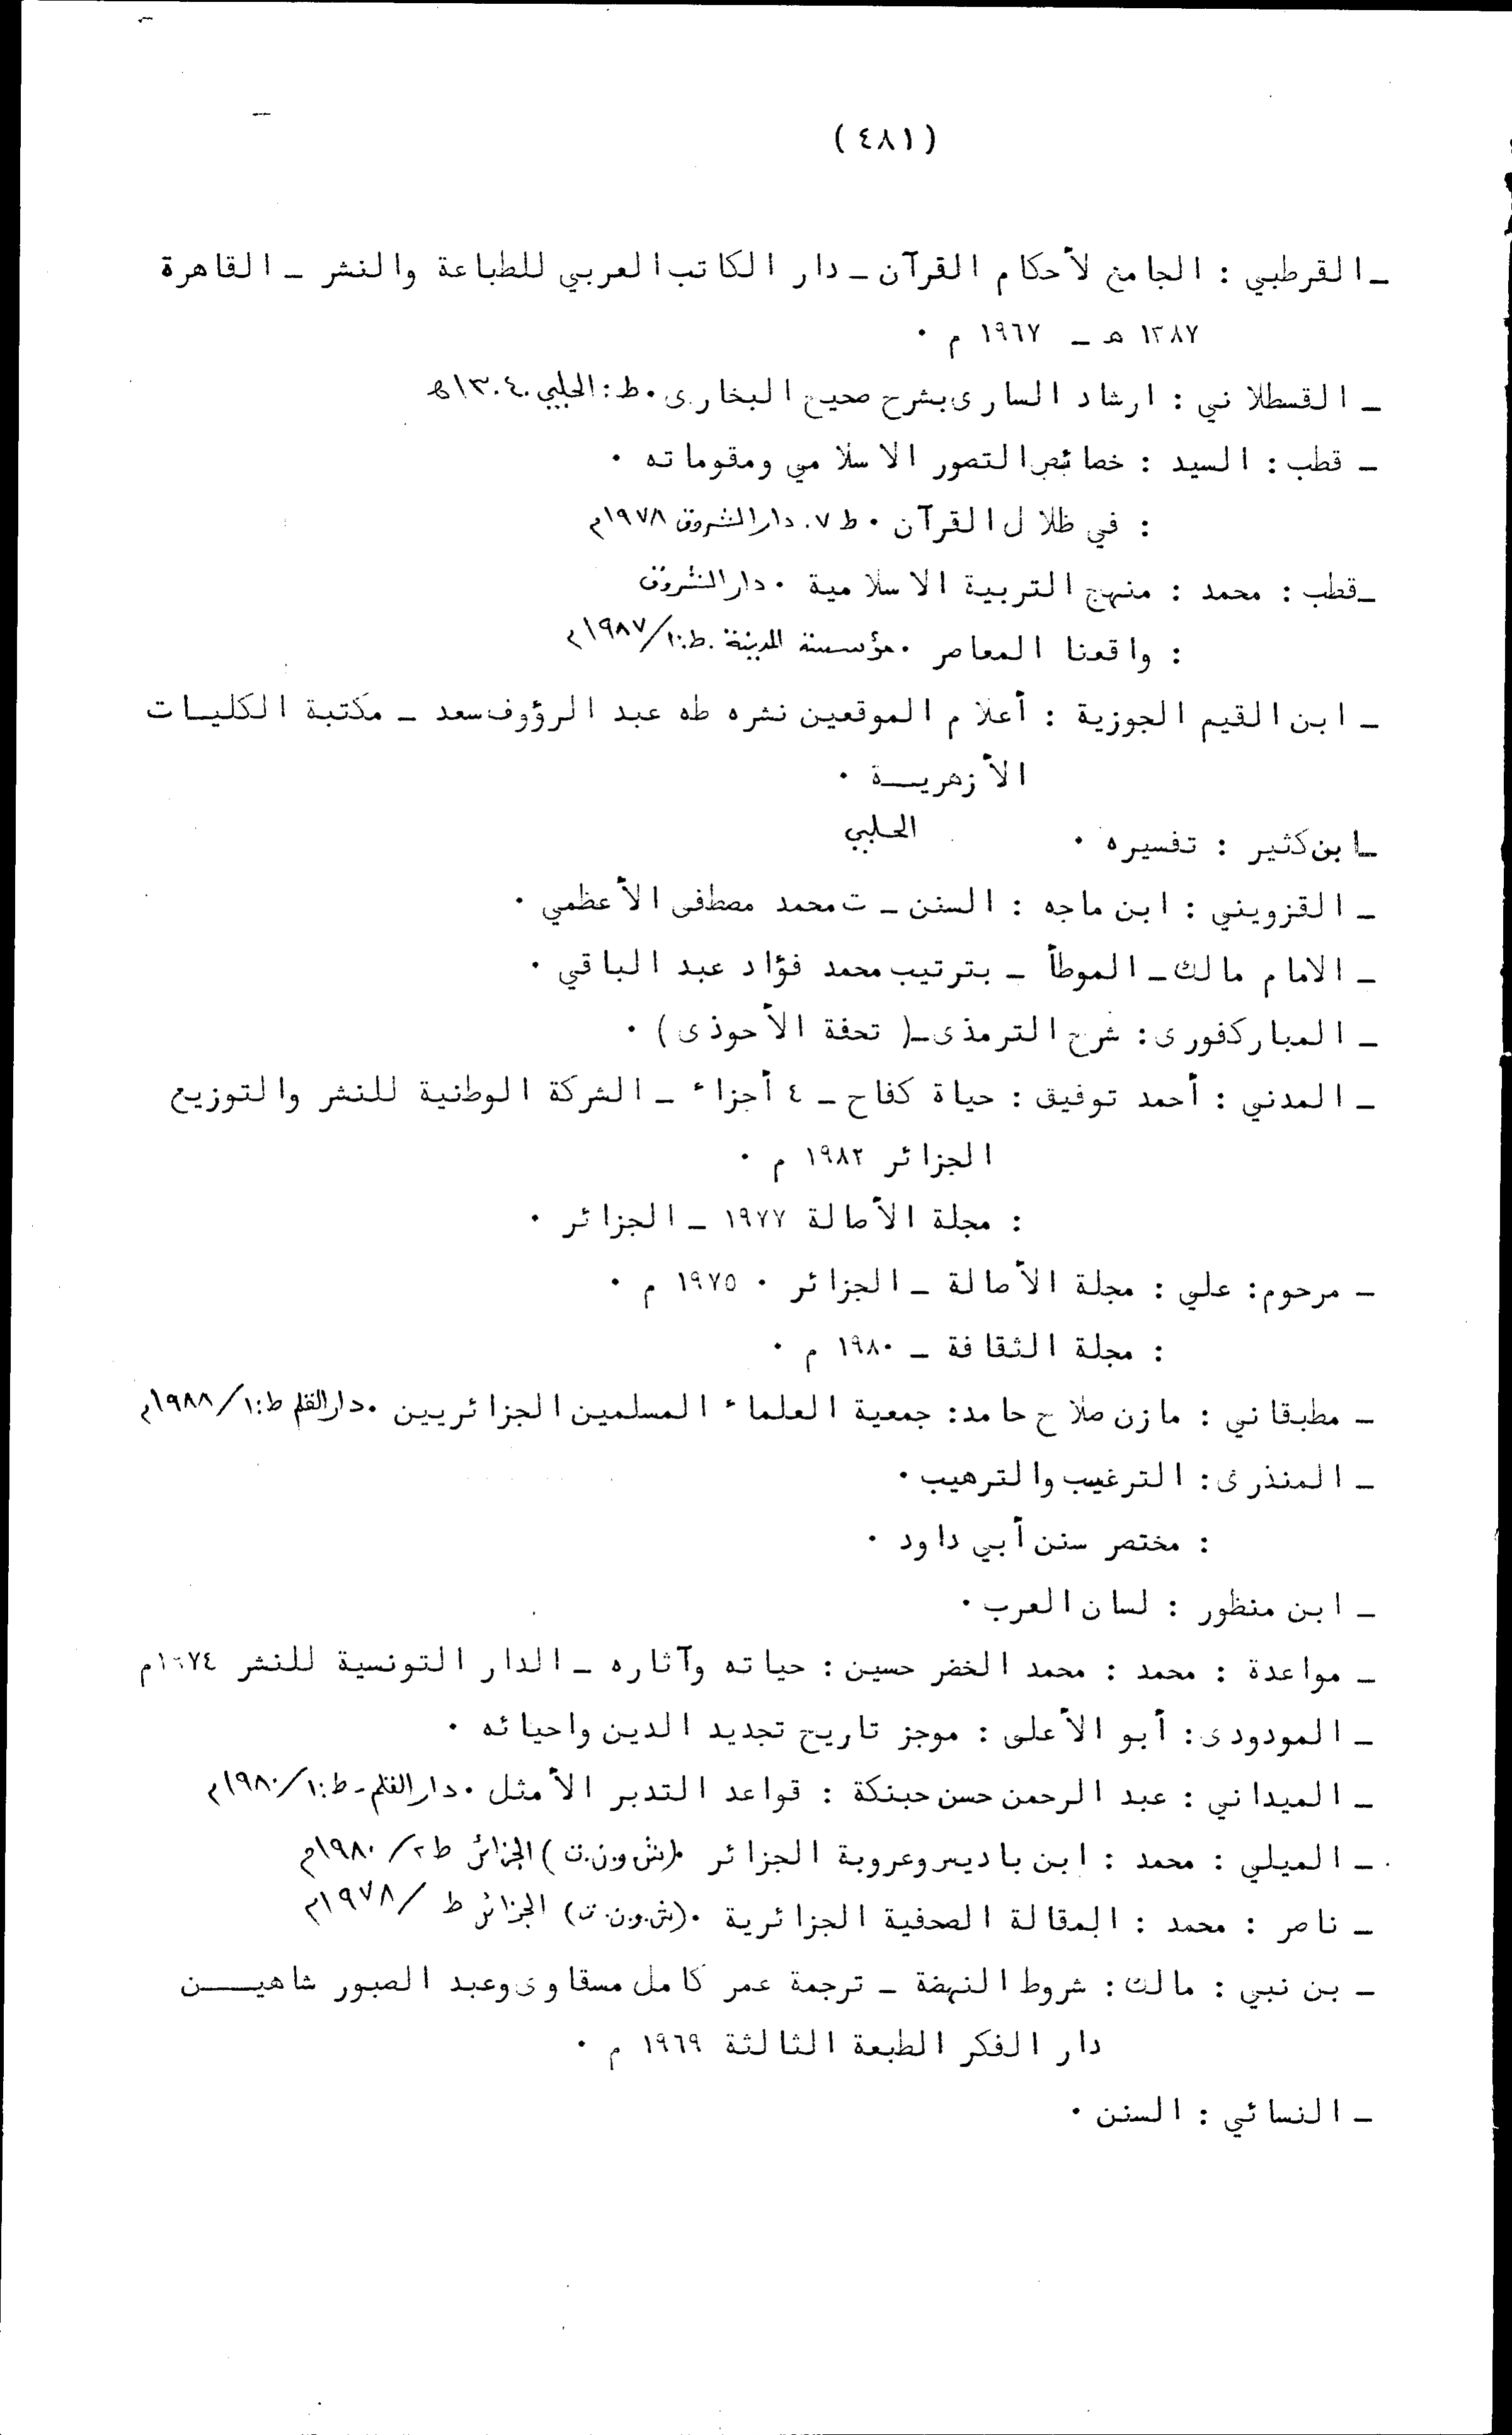 (٤٨١)
ـ القرطبي : الجامع لأحكام القرآن ـ دار الكاتب العربي للطباعة والنشر ـ القاهرة
١٣٨٧ هـ ـ ١٩٦٧ م ٠
ـ القسطلاني : ارشاد السارى بشرح صحيح البخارى ٠ ط : الحلبي ١٣٠٤ هـ
ـ قطب : السيد : خصائص التصور الاسلامي ومقوماته ٠
: في ظلال القرآن ٠ ط ٧. دار الشروق ١٩٧٨م
ـ قطب : محمد : منهج التربية الاسلامية ٠ دار الشروق
: واقعنا المعاصر ٠ مؤسسة المدينة . ط:١ / ١٩٨٧م
ـ ابن القيم الجوزية : أعلام الموقعين نشره طه عبد الرؤوف سعد ـ مكتبة الكليــات
الأزهريــة ٠
ـ ابن كثير : تفسيره ٠ الحلبي
ـ القزويني : ابن ماجه : السنن ـ ت محمد مصطفى الأعظمي ٠
ـ الامام مالك ـ الموطأ ـ بترتيب محمد فؤاد عبد الباقي ٠
ـ المباركفورى : شرح الترمذى ـ ( تحفة الأحوذى ) ٠
ـ المدني : أحمد توفيق : حياة كفاح ـ ٤ أجزاء ـ الشركة الوطنية للنشر والتوزيع
الجزائر ١٩٨٢ م ٠
: مجلة الأصالة ١٩٧٧ ـ الجزائر ٠
ـ مرحوم : علي : مجلة الأصالة ـ الجزائر ٠ ١٩٧٥ م ٠
: مجلة الثقافة ـ ١٩٨٠ م ٠
ـ مطبقاني : مازن صلاح حامد : جمعية العلماء المسلمين الجزائريين ٠ دار القلم ط:١ / ١٩٨٨م
ـ المنذرى : الترغيب والترهيب ٠
: مختصر سنن أبي داود ٠
ـ ابن منظور : لسان العرب ٠
ـ مواعدة : محمد : محمد الخضر حسين : حياته وآثاره ـ الدار التونسية للنشر ١٩٧٤م
ـ المودودى : أبو الأعلى : موجز تاريخ تجديد الدين واحيائه ٠
ـ الميداني : عبد الرحمن حسن حبنكة : قواعد التدبر الأمثل ٠ دار القلم ـ ط:١ / ١٩٨٠م
ـ الميلي : محمد : ابن باديس وعروبة الجزائر ٠ (ش.و.ن.ت) الجزائر ط٢ / ١٩٨٠م
ـ ناصر : محمد : المقالة الصحفية الجزائرية ٠ (ش.و.ن.ت) الجزائر ط / ١٩٧٨م
ـ بن نبي : مالك : شروط النهضة ـ ترجمة عمر كامل مسقاوى وعبد الصبور شاهيــن
دار الفكر الطبعة الثالثة ١٩٦٩ م ٠
ـ النسائي : السنن ٠